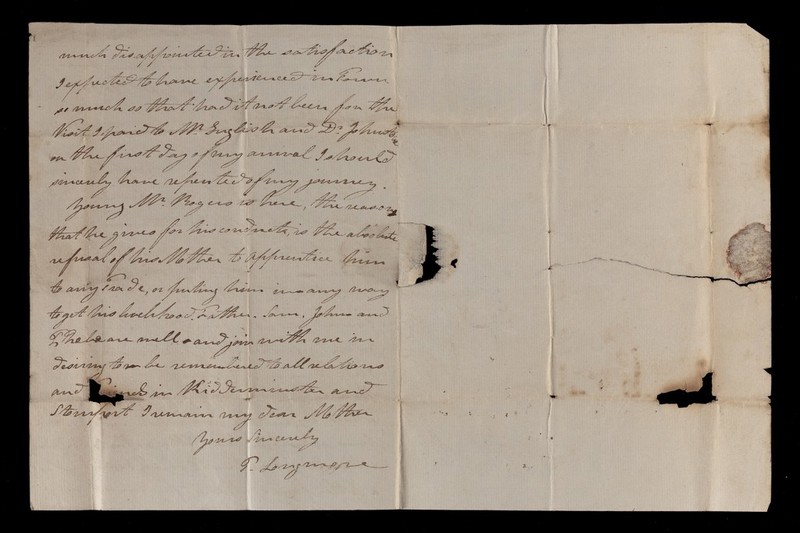 much disappointed in the satisfaction
I expected to have experienced in Town
so much so that had it not been for the
Visit I paid to Mr. English and Dr. Johnston
on the first day of my arrival I should
sincerely have repented of my journey.
Young Mr. Rogers is here, the reason
that he gives for his conduct, is the absolute
refusal of his Mother to apprentice him
to any Trade, or puting him in any way
to get his livelihood. Father. Sam. John and
Phebe are well and join with me in
desiring to be remembered to all relations
and Friends in Kidderminster and
Stourport I remain my dear Mother
Yours Sincerely
T. Longmore